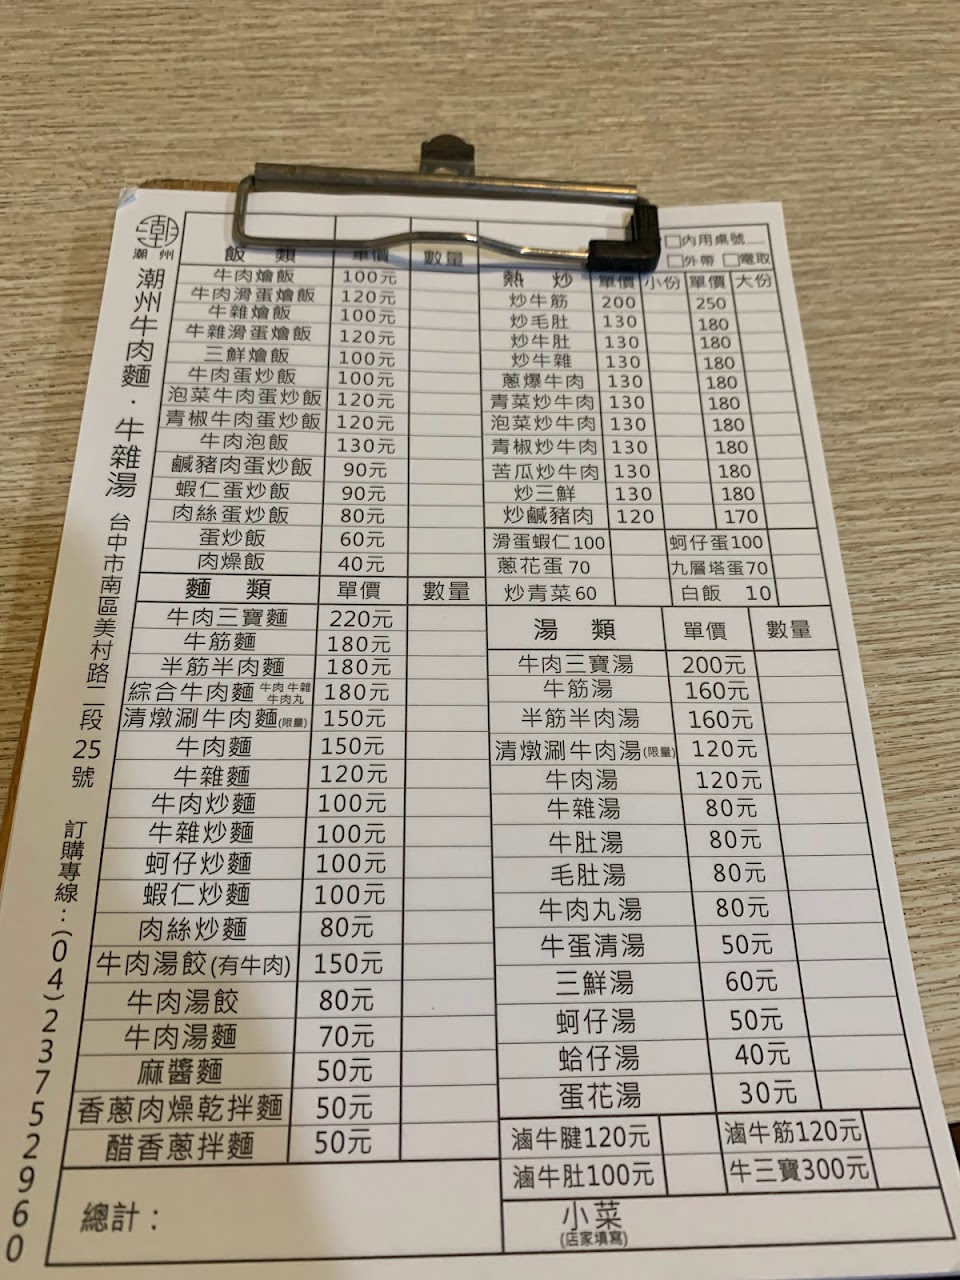 潮
潮州
潮州牛肉麵．牛雜湯
台中市南區美村路二段25號
訂購專線：(04)23752960
飯類 單價 數量
牛肉燴飯 100元
牛肉滑蛋燴飯 120元
牛雜燴飯 100元
牛雜滑蛋燴飯 120元
三鮮燴飯 100元
牛肉蛋炒飯 100元
泡菜牛肉蛋炒飯 120元
青椒牛肉蛋炒飯 120元
牛肉泡飯 130元
鹹豬肉蛋炒飯 90元
蝦仁蛋炒飯 90元
肉絲蛋炒飯 80元
蛋炒飯 60元
肉燥飯 40元
麵類 單價 數量
牛肉三寶麵 220元
牛筋麵 180元
半筋半肉麵 180元
綜合牛肉麵 牛肉 牛雜 牛肉丸 180元
清燉涮牛肉麵(限量) 150元
牛肉麵 150元
牛雜麵 120元
牛肉炒麵 100元
牛雜炒麵 100元
蚵仔炒麵 100元
蝦仁炒麵 100元
肉絲炒麵 80元
牛肉湯餃(有牛肉) 150元
牛肉湯餃 80元
牛肉湯麵 70元
麻醬麵 50元
香蔥肉燥乾拌麵 50元
醋香蔥拌麵 50元
總計：
□內用桌號
□外帶 □電取
熱炒 單價 小份 單價 大份
炒牛筋 200 250
炒毛肚 130 180
炒牛肚 130 180
炒牛雜 130 180
蔥爆牛肉 130 180
青菜炒牛肉 130 180
泡菜炒牛肉 130 180
青椒炒牛肉 130 180
苦瓜炒牛肉 130 180
炒三鮮 130 180
炒鹹豬肉 120 170
滑蛋蝦仁100 蚵仔蛋100
蔥花蛋 70 九層塔蛋70
炒青菜 60 白飯 10
湯類 單價 數量
牛肉三寶湯 200元
牛筋湯 160元
半筋半肉湯 160元
清燉涮牛肉湯(限量) 120元
牛肉湯 120元
牛雜湯 80元
牛肚湯 80元
毛肚湯 80元
牛肉丸湯 80元
牛蛋清湯 50元
三鮮湯 60元
蚵仔湯 50元
蛤仔湯 40元
蛋花湯 30元
滷牛腱120元 滷牛筋120元
滷牛肚100元 牛三寶300元
小菜
(店家填寫)